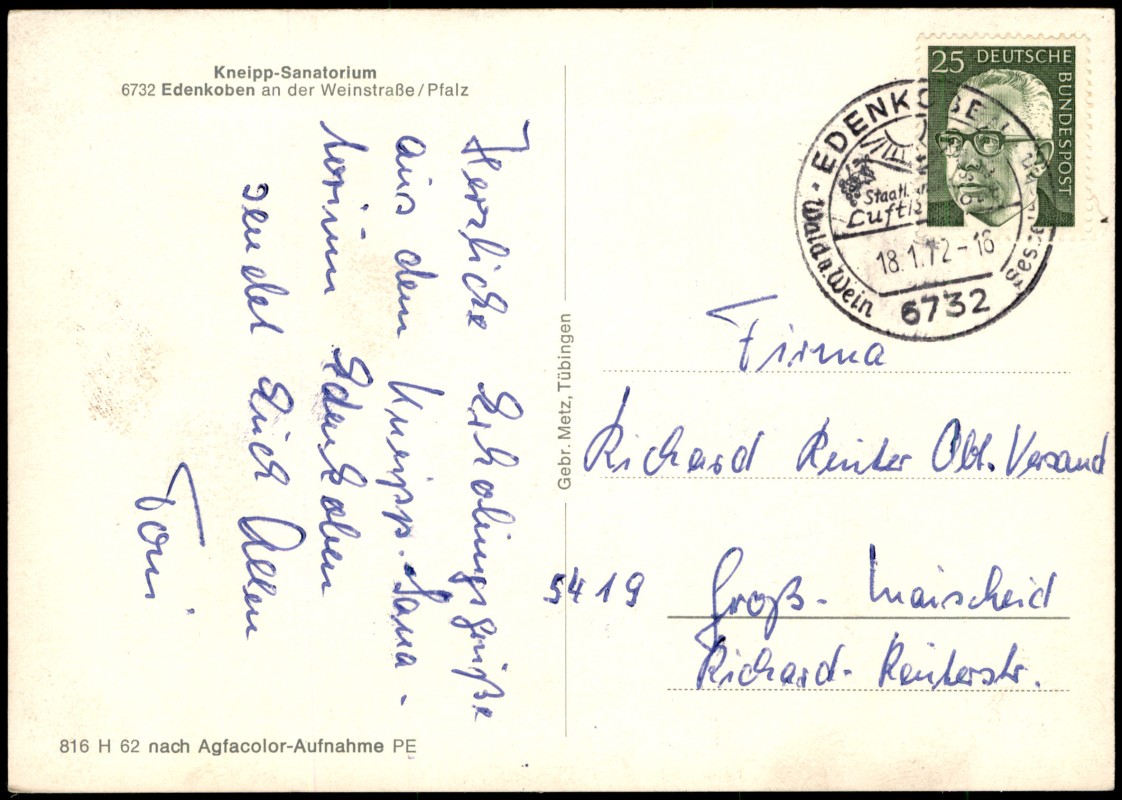 Kneipp-Sanatorium
6732 Edenkoben an der Weinstraße/Pfalz
Herzliche Erholungsgrüße
aus dem Kneipp-Sana-
torium Edenkoben
sendet Euch Allen
Toni
816 H 62 nach Agfacolor-Aufnahme PE
Gebr. Metz, Tübingen
25 DEUTSCHE
BUNDESPOST
EDENKOBEN
Staatl.
Luft
18.1.72-16
Wald u. Wein
6732
Firma
Richard Reuter Abt. Versand
5419 Groß-Maischeid
Richard-Reuterstr.